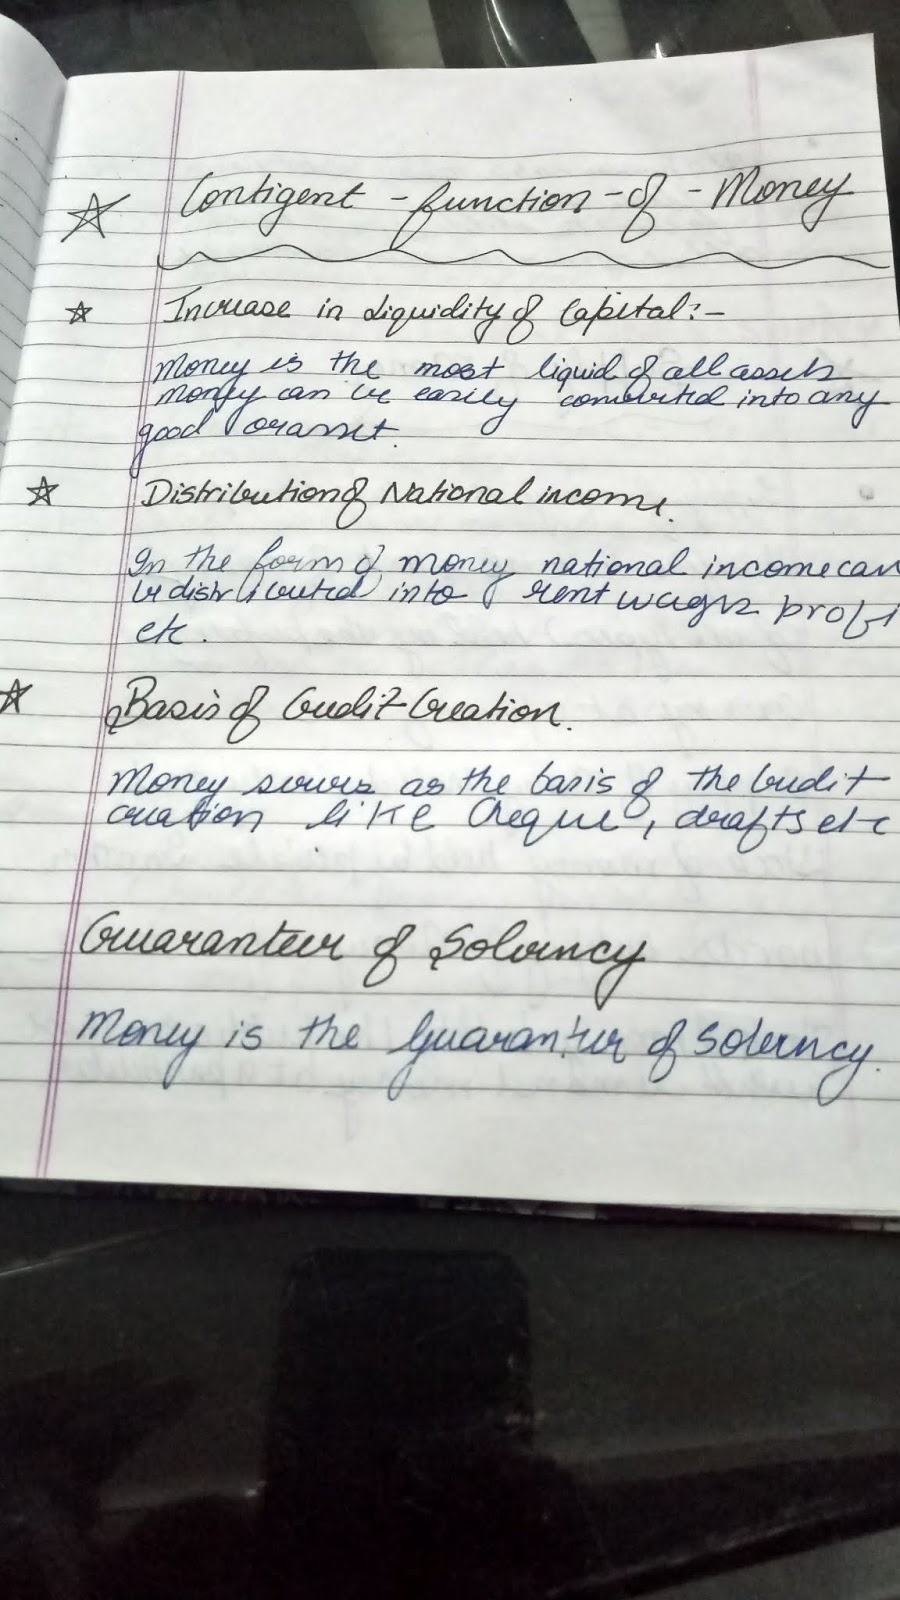 Contigent - function - of - Money
Increase in Liquidity of Capital:-
Money is the most liquid of all assets
money can be easily converted into any
good or asset.
Distribution of National income.
In the form of money national income can
be distributed into rent wages profi
etc.
Basis of Credit Creation.
Money serves as the basis of the Credit
creation like Cheque, drafts etc
Guaranteer of Solvency
Money is the Guaranteer of Solvency.